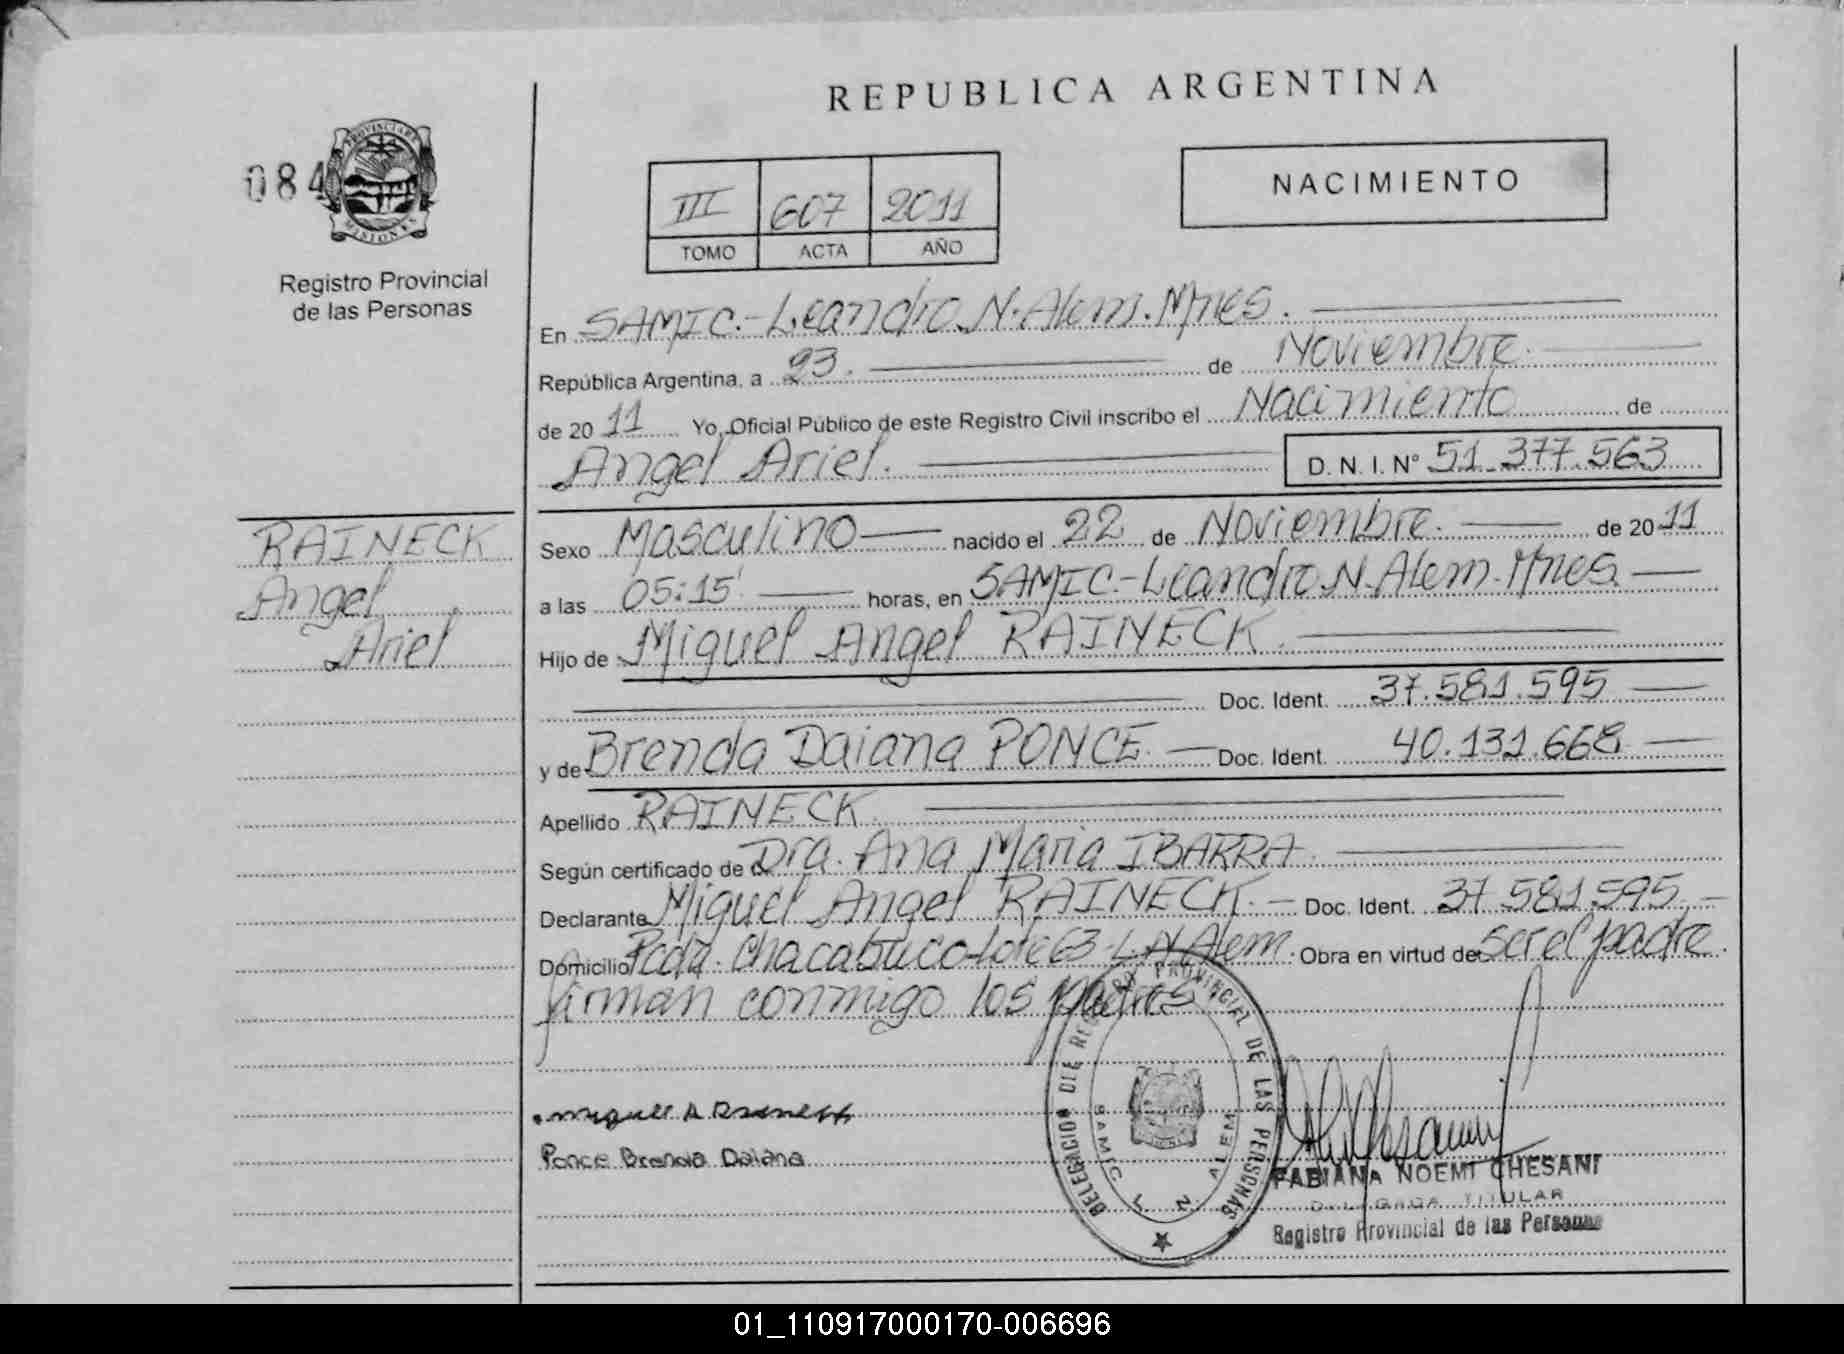 REPUBLICA ARGENTINA
084
PROVINCIA DE
MISIONES
Registro Provincial
de las Personas
III 607 2011
TOMO ACTA AÑO
NACIMIENTO
En SAMIC.-Leandro.N.Alem.Mnes.
República Argentina, a 23. de Noviembre.
de 20 11 Yo, Oficial Público de este Registro Civil inscribo el Nacimiento de
Angel Ariel. D.N.I.N° 51.377.563
RAINECK
Angel
Ariel
Sexo Masculino nacido el 22 de Noviembre. de 20 11
a las 05:15' horas, en SAMIC.-Leandro.N.Alem.Mnes.
Hijo de Miguel Angel RAINECK.
Doc. Ident. 37.581.595
y de Brenda Daiana PONCE. Doc. Ident. 40.131.668
Apellido RAINECK.
Según certificado de Dra. Ana Maria IBARRA.
Declarante Miguel Angel RAINECK.- Doc. Ident. 37.581.595.-
Domicilio Pcda. Chacabuco-Lote 63-L.N.Alem. Obra en virtud de ser el padre.
firman conmigo los padres.
Miguel A Raineck
Ponce Brenda Daiana
DELEGACION DEL REGISTRO PROVINCIAL DE LAS PERSONAS
SAMIC L. N. ALEM
FABIANA NOEMI CHESANI
DELEGADA TITULAR
Registro Provincial de las Personas
01_110917000170-006696